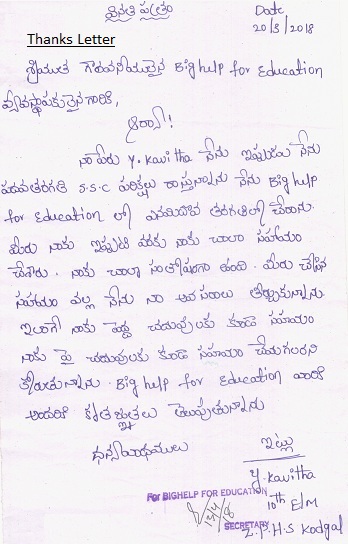 వినతి పత్రం
Date
20/3/2018
Thanks Letter
శ్రీయుత గౌరవనీయులైన Big help for Education
వ్యవస్థాపకులైనగారికి,
ఆర్యా!
నా పేరు Y. Kavitha నేను ఇప్పుడు నేను
పదవతరగతి S.S.C పరీక్షలు రాస్తున్నాను నేను Big help
for Education లో ఎనిమిదొవ తరగతిలో చేరాను.
మీరు నాకు ఇప్పటి వరకు నాకు చాలా సహాయం
చేశారు. నాకు చాలా సంతోషంగా ఉంది. మీరు చేసిన
సహాయం వల్ల నేను నా అవసరాలు తీర్చుకున్నాను
ఇలాగే నాకు పెద్ద చదువులకు కూడా సహాయం
నాకు పై చదువులకు కూడా సహాయం చేయగలరని
కోరుతున్నాను. Big help for Education వారికి
అందరికి కృతజ్ఞతలు తెలుపుతున్నాను
ధన్యవాదములు
ఇట్లు
Y. Kavitha
10th E/M
Z.P.H.S Kodgal
For BIGHELP FOR EDUCATION
13/4/18
SECRETARY